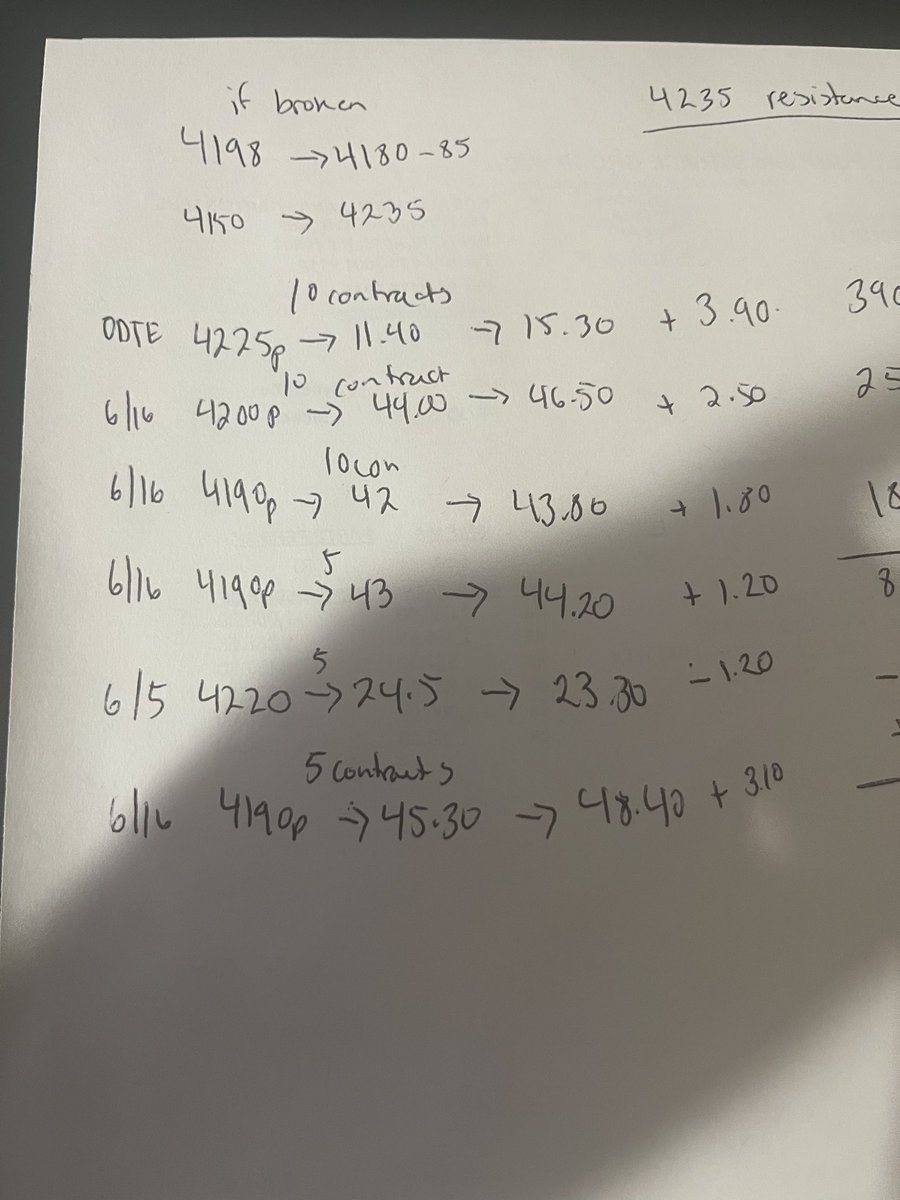 if broken
4235 resistance
4198 → 4180-85
4150 → 4235
10 contracts
ODTE 4225p → 11.40 → 15.30 + 3.90. 390
10 contract
6/16 4200p → 44.00 → 46.50 + 2.50 25
10con
6/16 4190p → 42 → 43.80 + 1.80 18
5
6/16 4190p → 43 → 44.20 + 1.20 8
5
6/5 4220 → 24.5 → 23.30 - 1.20 -
5 contracts
6/16 4190p → 45.30 → 48.40 + 3.10